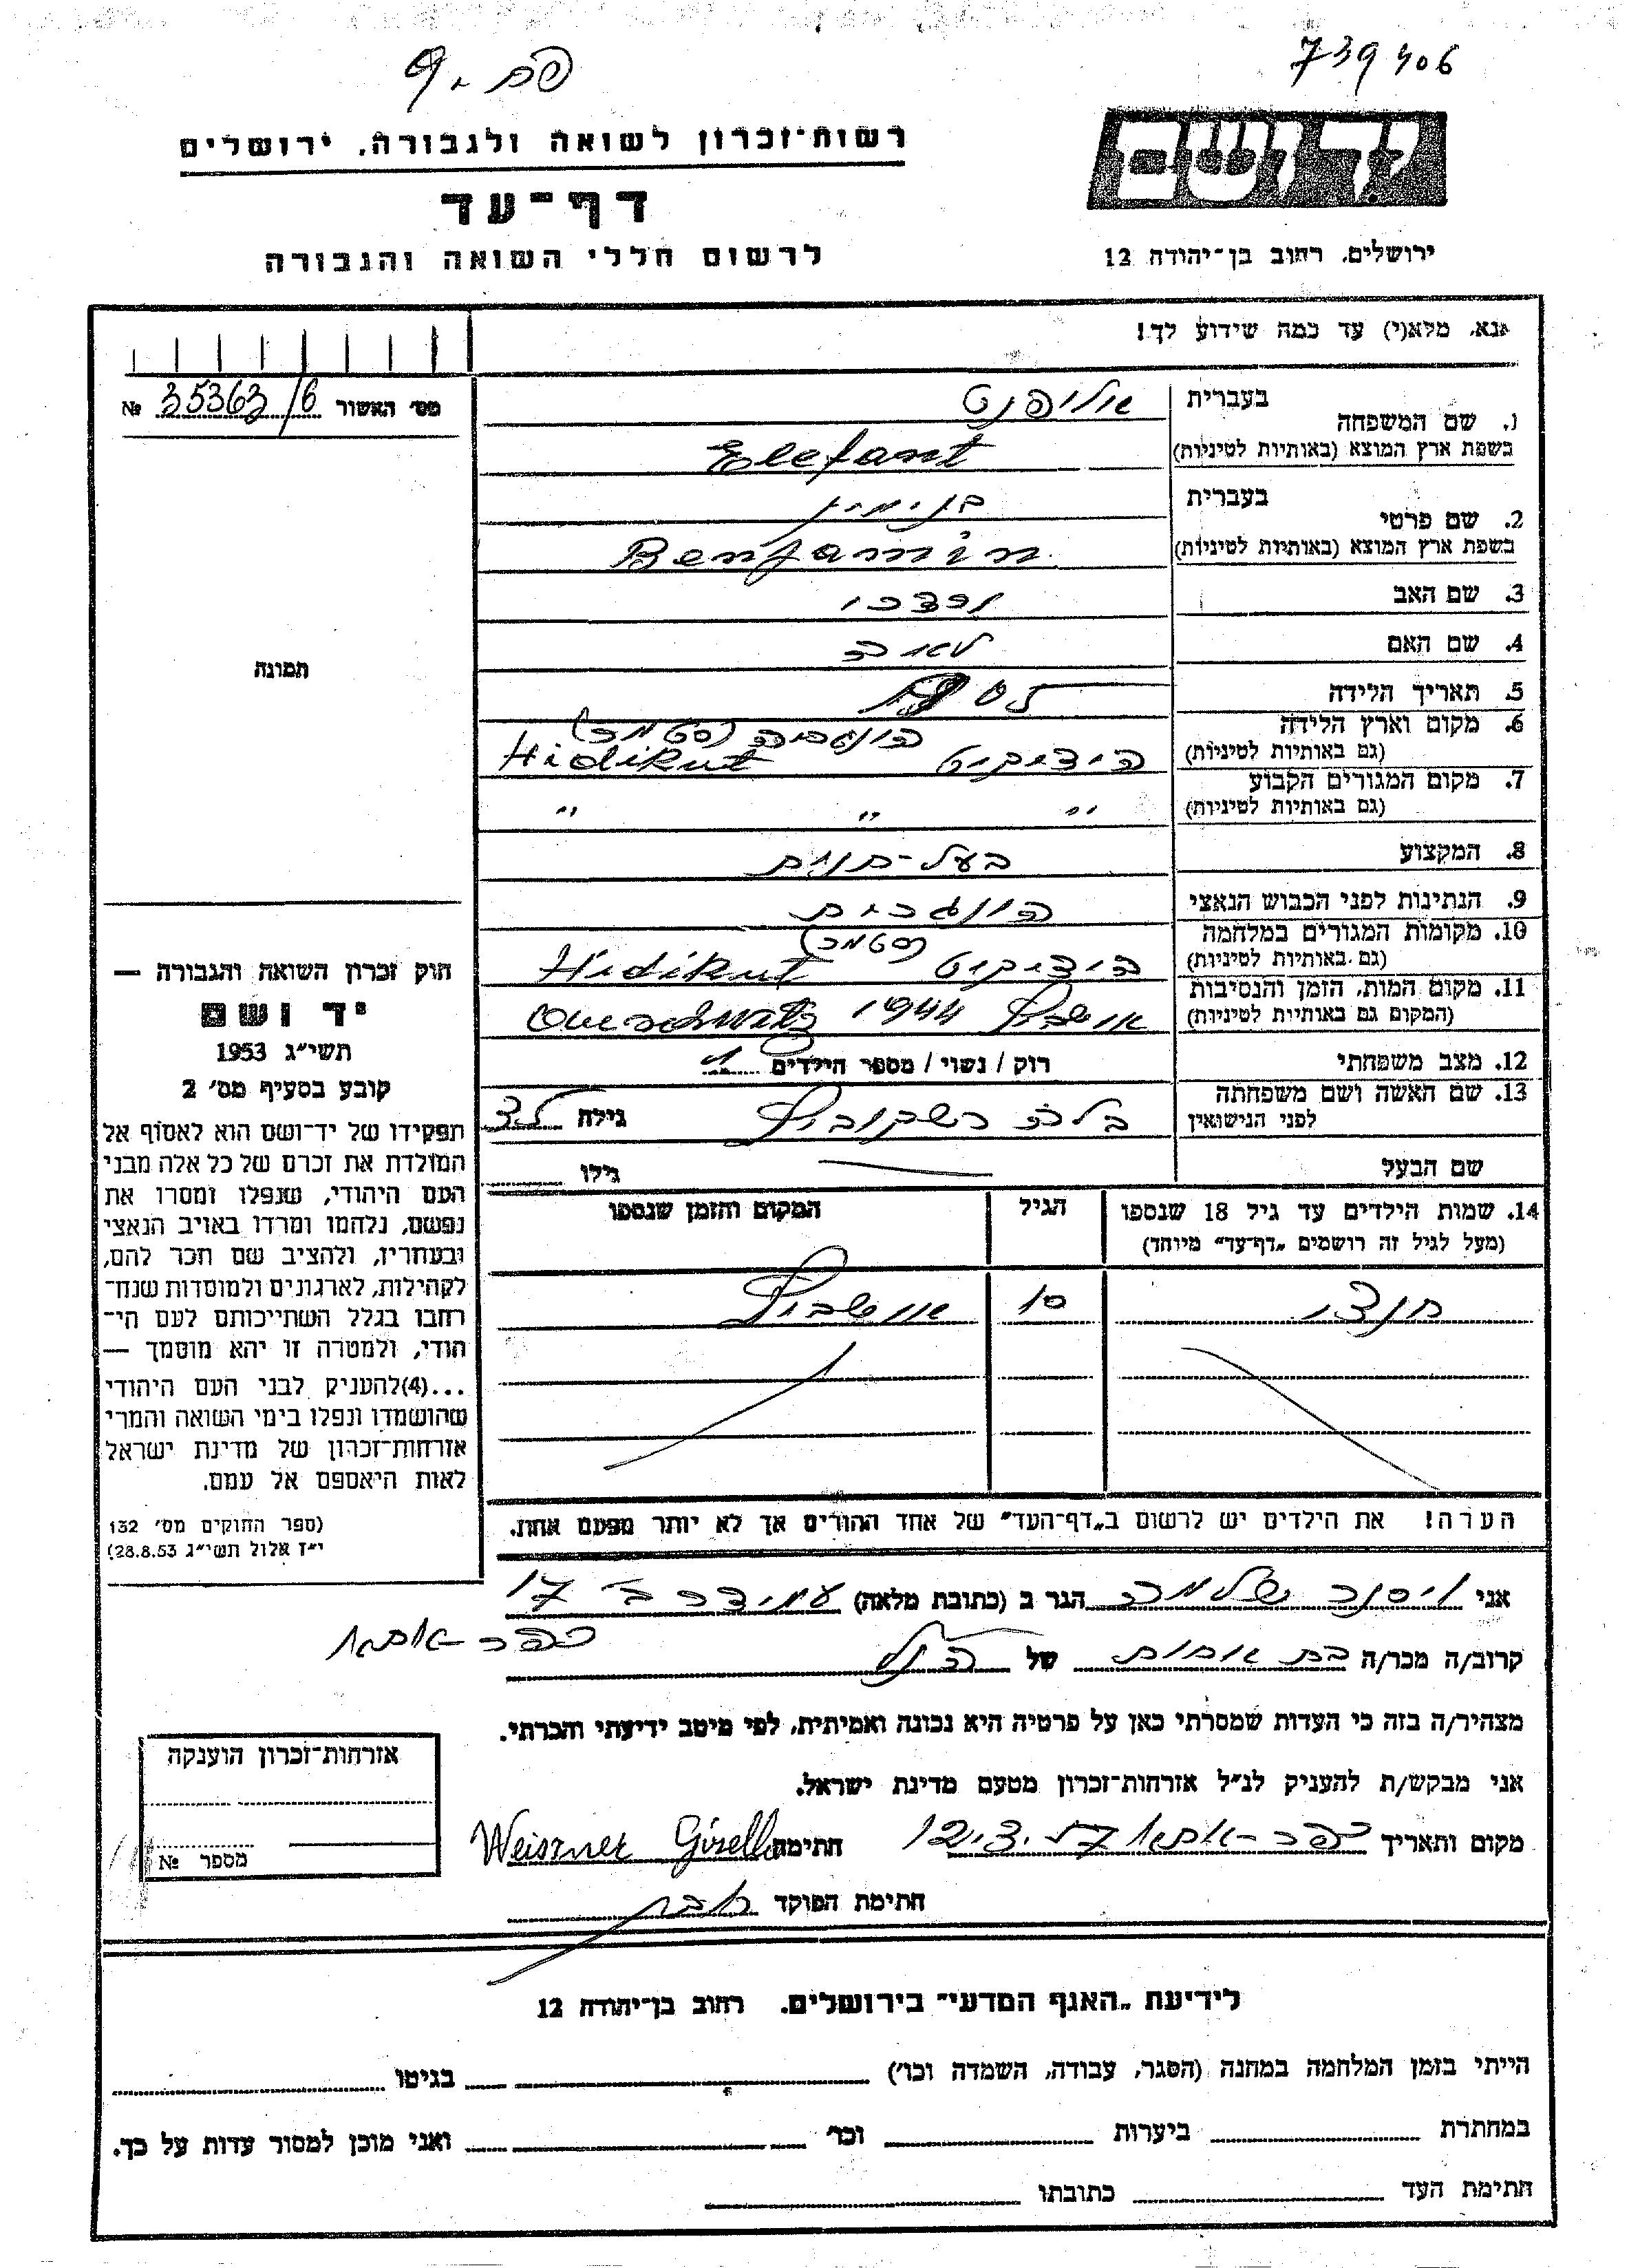 739406
פח. 9
יד ושם
ירושלים, רחוב בן־יהודה 12
רשות־זכרון לשואה ולגבורה, ירושלים
דף־עד
לרשום חללי השואה והגבורה
אנא, מלא(י) עד כמה שידוע לך!
מס׳ האשור 35363/6 №
1. שם המשפחה בעברית אליפנט
בשפת ארץ המוצא (באותיות לטיניות) Elefant
2. שם פרטי בעברית בנימין
בשפת ארץ המוצא (באותיות לטיניות) Benjamin
3. שם האב מרדכי
4. שם האם לאה
5. תאריך הלידה
6. מקום וארץ הלידה הונגריה (סטמר)
(גם באותיות לטיניות) הידיקוט Hidikut
7. מקום המגורים הקבוע
(גם באותיות לטיניות) " " "
8. המקצוע בעל-חנות
9. הנתינות לפני הכבוש הנאצי הונגרית
10. מקומות המגורים במלחמה (סטמר)
(גם באותיות לטיניות) הידיקוט Hidikut
11. מקום המות, הזמן והנסיבות
(המקום גם באותיות לטיניות) אושביץ 1944
12. מצב משפחתי רוק / נשוי / מספר הילדים 1
13. שם האשה ושם משפחתה
לפני הנישואין הרשקוביץ גילה
שם הבעל גילו
14. שמות הילדים עד גיל 18 שנספו הגיל המקום והזמן שנספו
(מעל לגיל זה רושמים „דף־עד״ מיוחד)
10 אושביץ
הערה! את הילדים יש לרשום ב„דף־העד״ של אחד ההורים אך לא יותר מפעם אחת.
תמונה
חוק זכרון השואה והגבורה —
יד ושם
תשי״ג 1953
קובע בסעיף מס׳ 2
תפקידו של יד־ושם הוא לאסוף אל
המולדת את זכרם של כל אלה מבני
העם היהודי, שנפלו ומסרו את
נפשם, נלחמו ומרדו באויב הנאצי
ובעוזריו, ולהציב שם וזכר להם,
לקהילות, לארגונים ולמוסדות שנח־
רבו בגלל השתייכותם לעם הי־
הודי, ולמטרה זו יהא מוסמך —
...(4)להעניק לבני העם היהודי
שהושמדו ונפלו בימי השואה והמרי
אזרחות־זכרון של מדינת ישראל
לאות היאספם אל עמם.
(ספר החוקים מס׳ 132
י״ז אלול תשי״ג 28.8.53)
אני ויסנר הגר ב (כתובת מלאה) עמידר ב׳ 17
כפר-אתא
קרוב/ה מכר/ה בת אחות של הנ״ל
מצהיר/ה בזה כי העדות שמסרתי כאן על פרטיה היא נכונה ואמיתית, לפי מיטב ידיעתי והכרתי.
אני מבקש/ת להעניק לנ״ל אזרחות־זכרון מטעם מדינת ישראל.
מקום ותאריך כפר-אתא חתימה Weiszner Gisella
חתימת הפוקד
אזרחות־זכרון הוענקה
מספר №
לידיעת „האגף המדעי״ בירושלים. רחוב בן־יהודה 12
הייתי בזמן המלחמה במחנה (הסגר, עבודה, השמדה וכו׳) בגיטו
במחתרת ביערות וכו׳ ואני מוכן למסור עדות על כך.
חתימת העד כתובתו